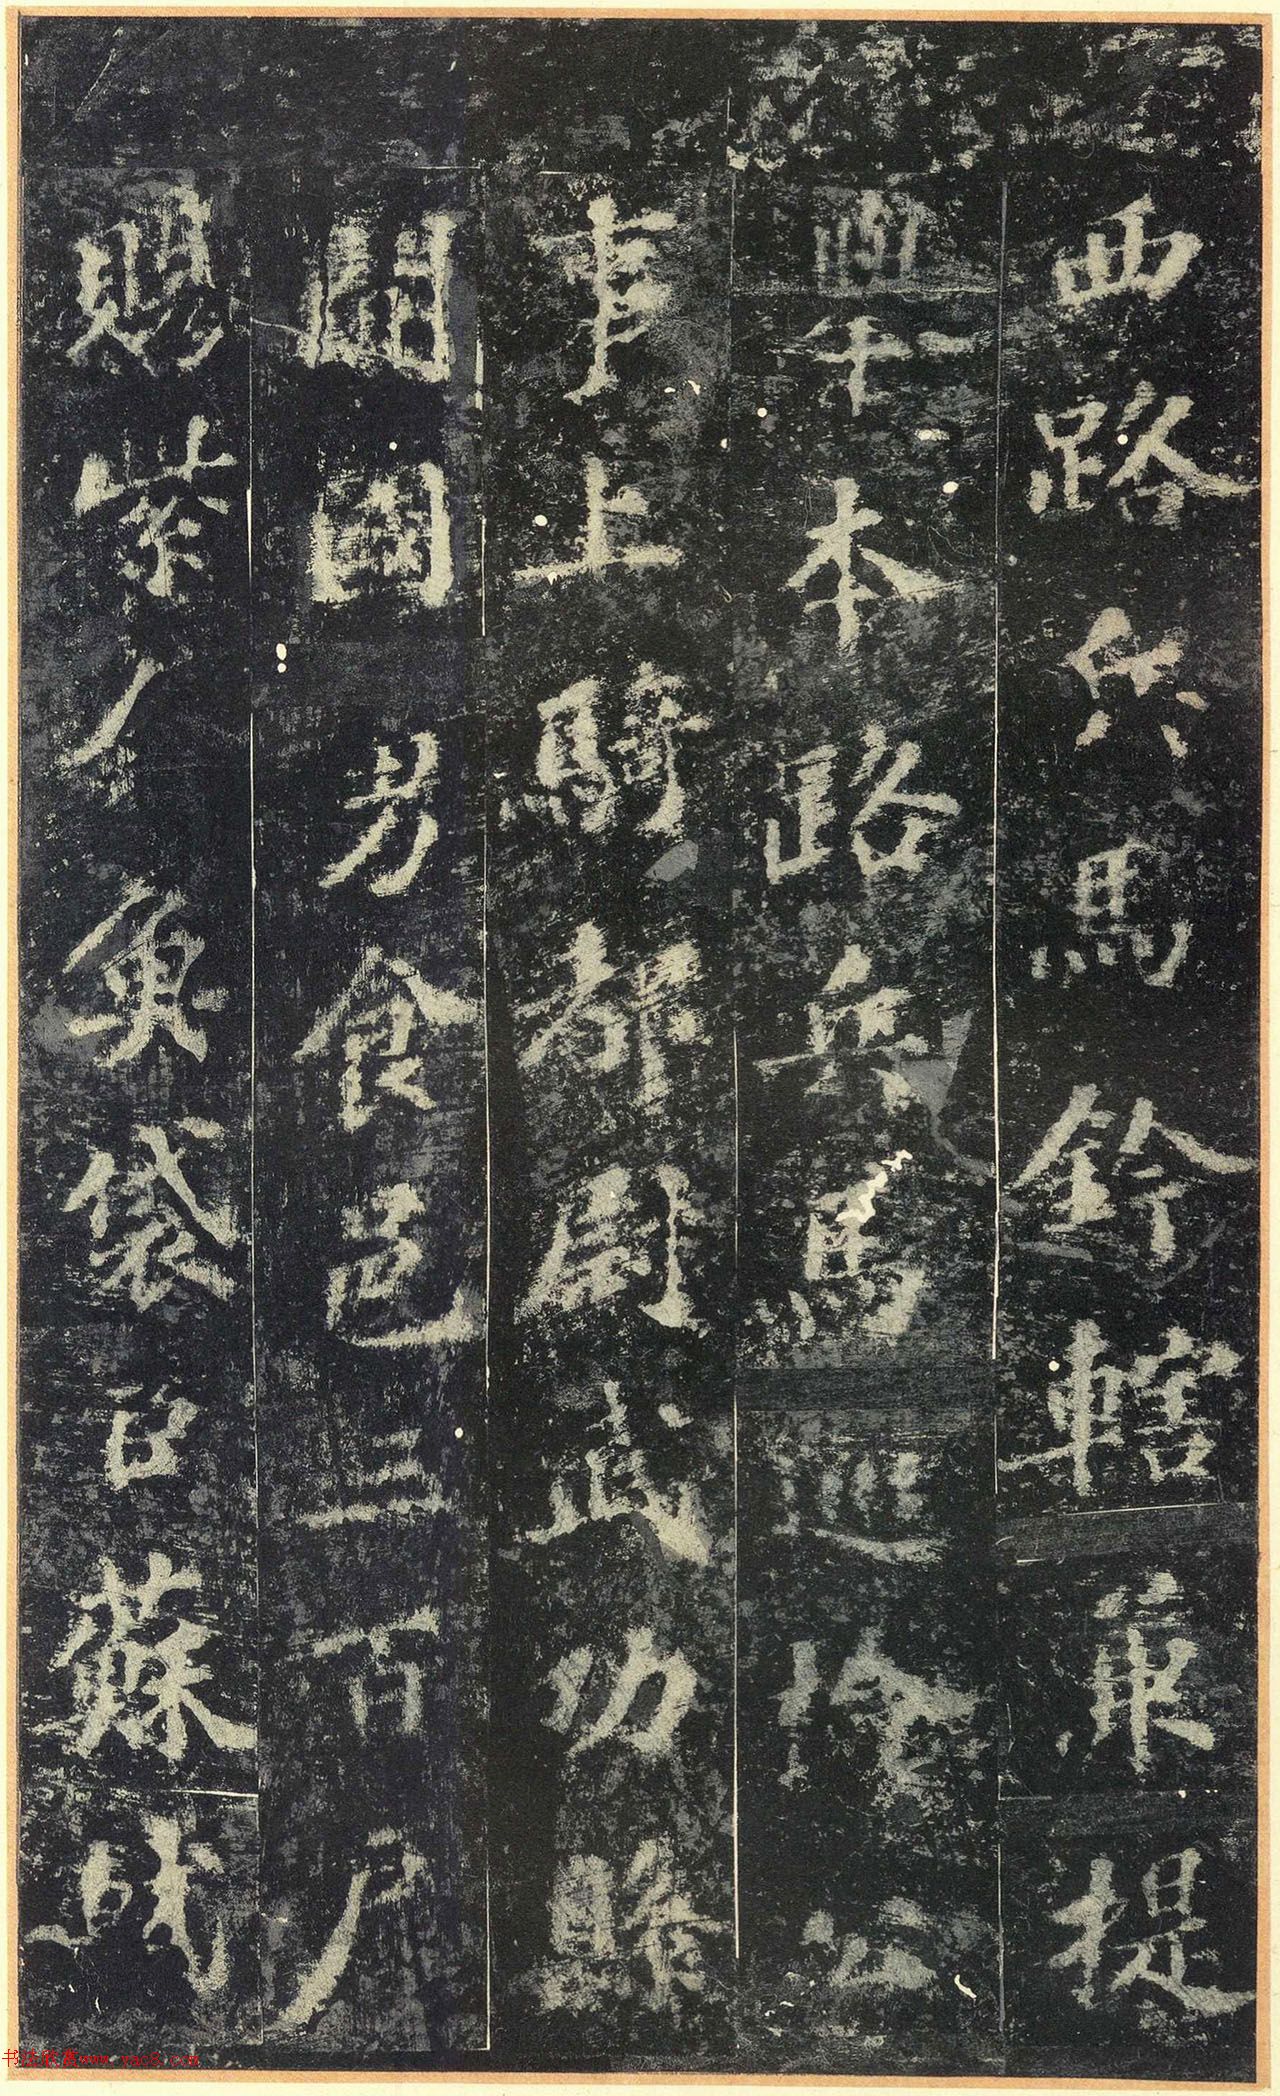 西路兵馬鈐轄兼提
舉本路兵馬巡檢公
事上騎都尉武功縣
開國男食邑三百戶
賜紫金魚袋臣蘇軾
书法欣赏www.yac8.com